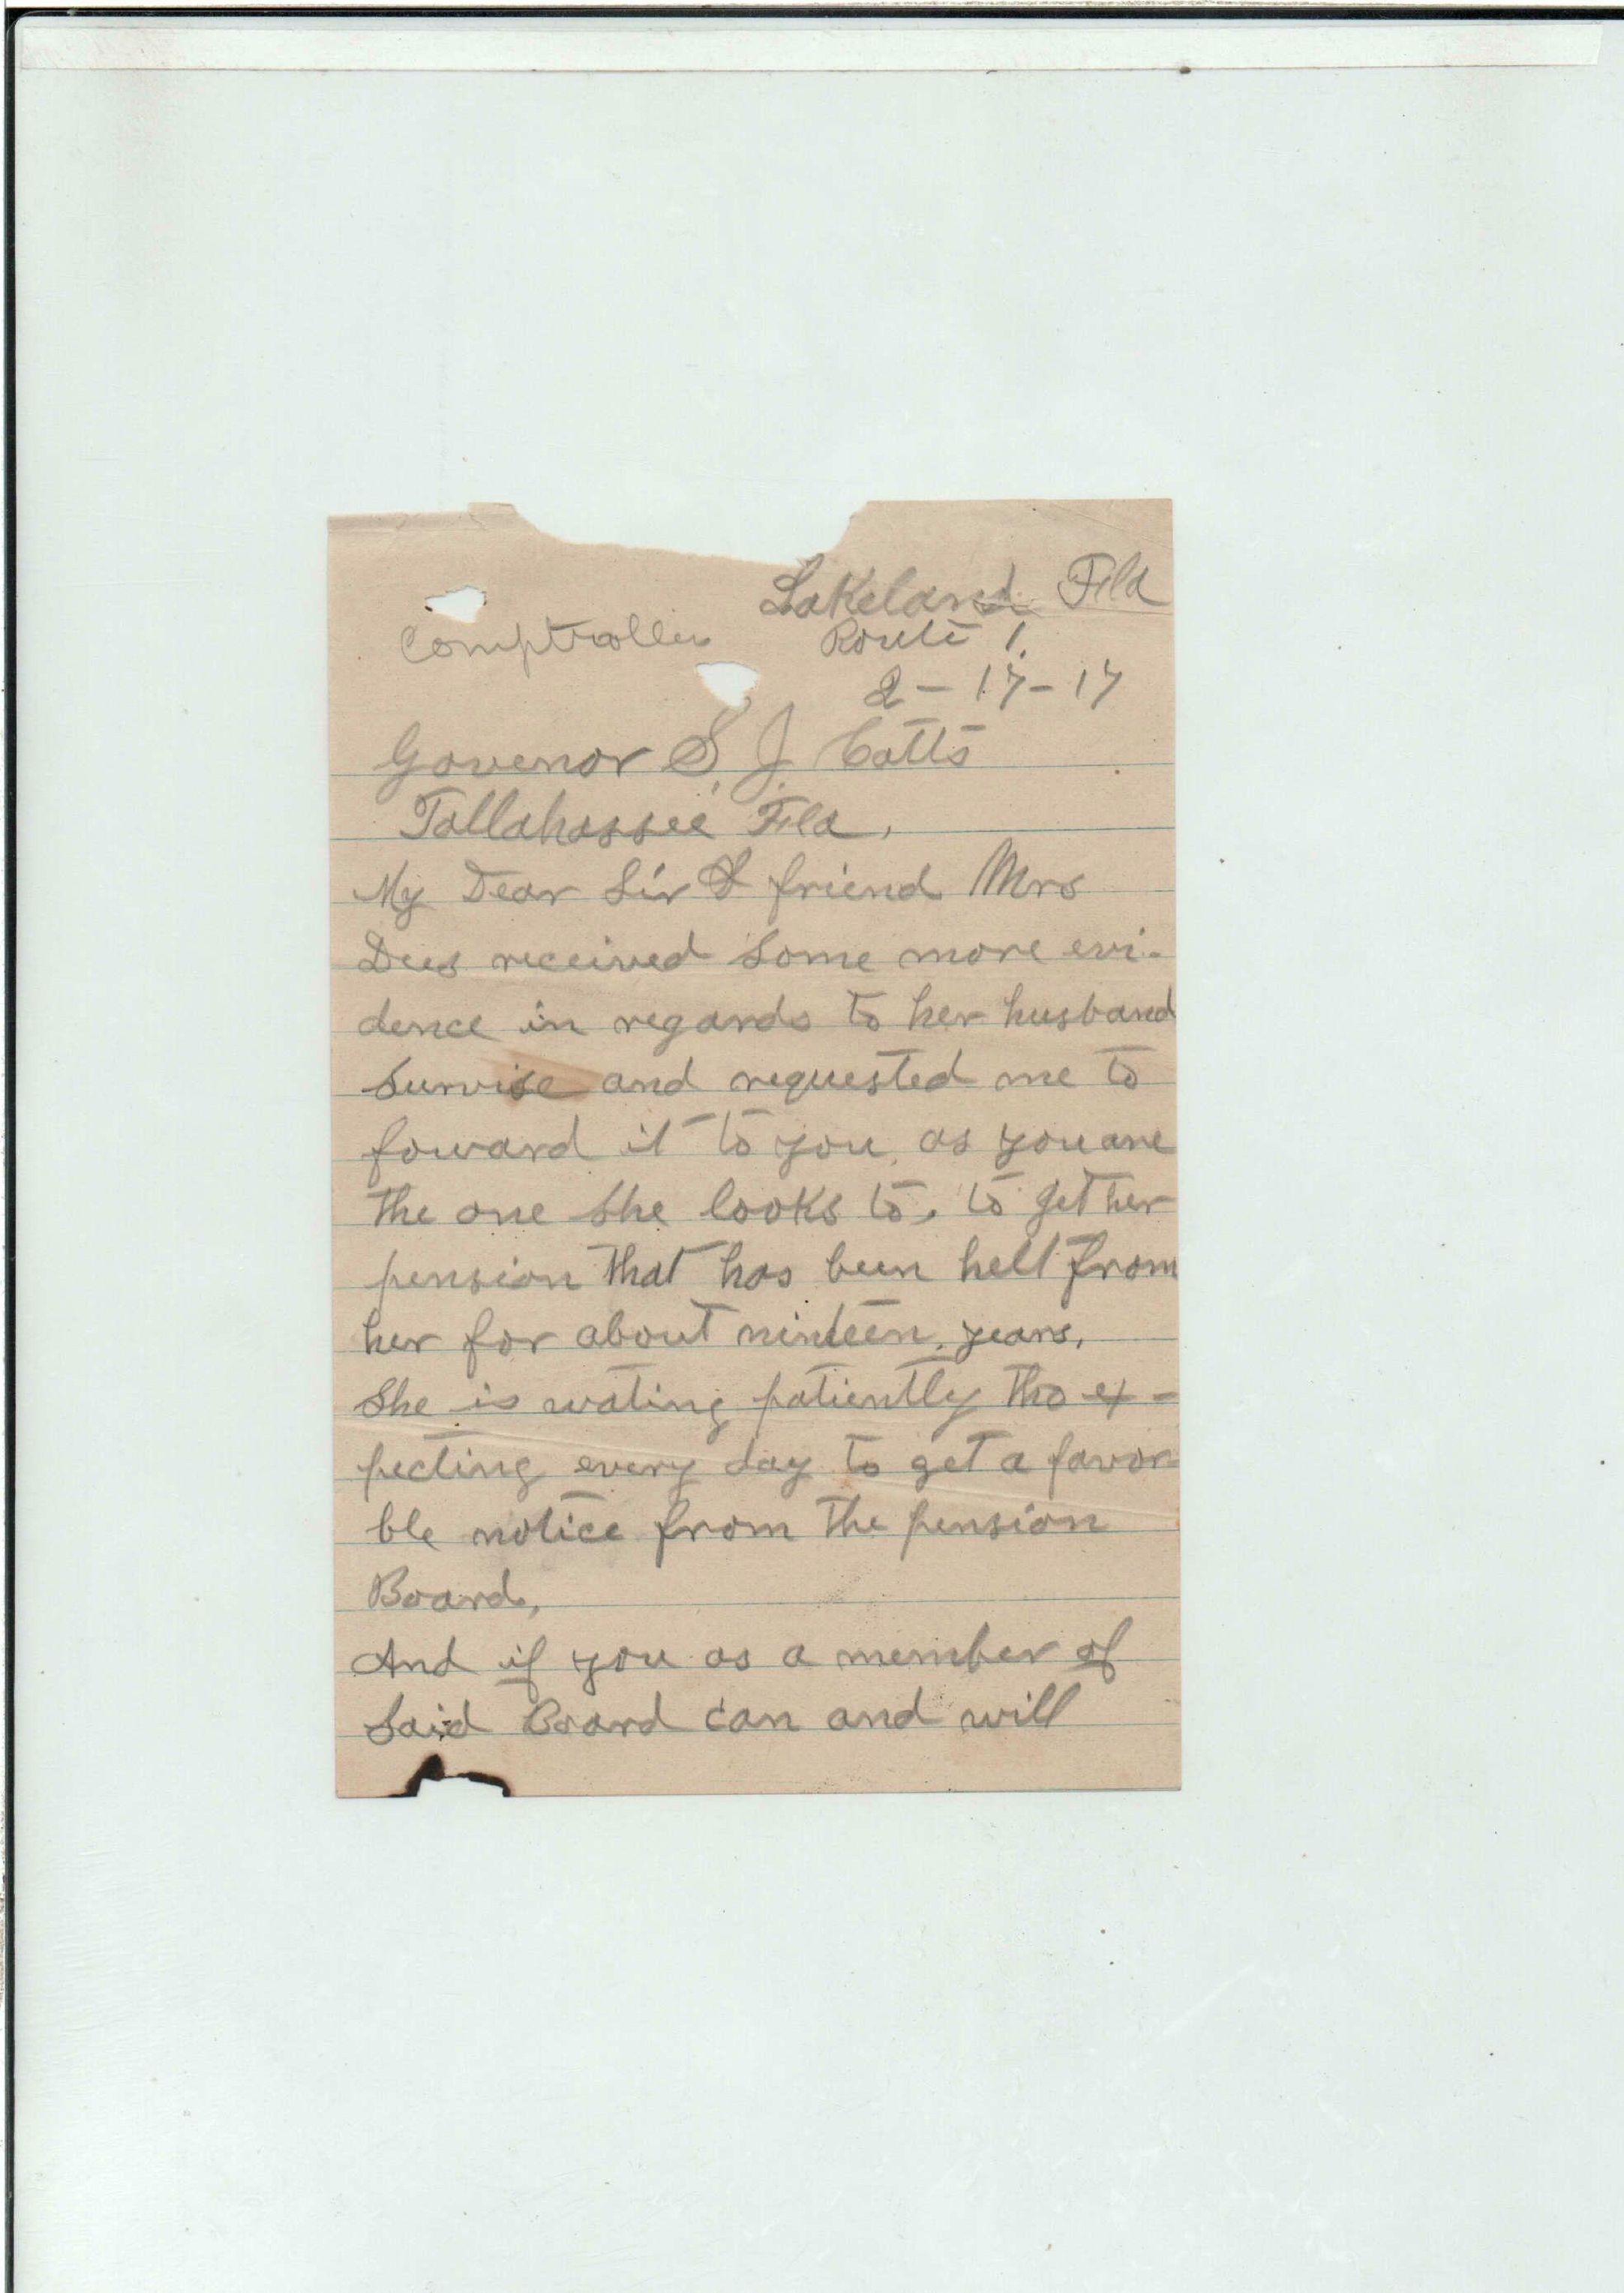 Lakeland Fla
Comptroller Route 1.
2-17-17
Govenor S. J. Catts
Tallahassee Fla.
My Dear Sir & friend Mrs
Dees received some more evi-
dence in regards to her husband
survise and requested me to
foward it to you as you are
the one she looks to, to get her
pension that has been helt from
her for about ninteen years.
She is wating patiently tho ex-
pecting every day to get a favor
ble notice from the pension
Board,
And if you as a member of
said Board can and will